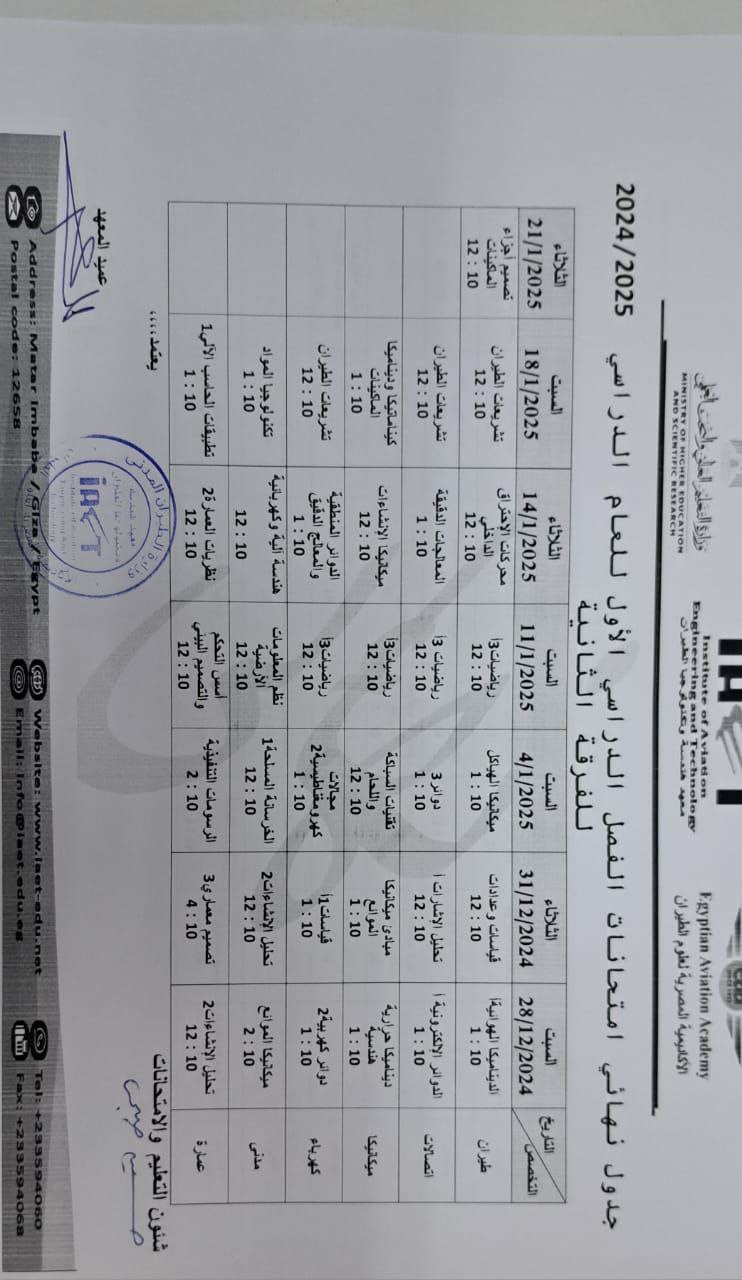 وزارة التعليم العالي والبحث العلمي
MINISTRY OF HIGHER EDUCATION
AND SCIENTIFIC RESEARCH
Institute of Aviation
Engineering and Technology
معهد هندسة وتكنولوجيا الطيران
Egyptian Aviation Academy
الأكاديمية المصرية لعلوم الطيران
جدول نهائي امتحانات الفصل الدراسي الأول للعام الدراسي 2024/2025
للفرقة الثانية
التاريخ
التخصص
السبت 28/12/2024
الثلاثاء 31/12/2024
السبت 4/1/2025
السبت 11/1/2025
الثلاثاء 14/1/2025
السبت 18/1/2025
الثلاثاء 21/1/2025
طيران
الديناميكا الهوائية أ
1 : 10
قياسات وعدادات
12 : 10
ميكانيكا الهياكل
1 : 10
رياضيات3أ
12 : 10
محركات الاحتراق
الداخلي
12 : 10
تشريعات الطيران
12 : 10
تصميم أجزاء
الماكينات
12 : 10
اتصالات
الدوائر الإلكترونية أ
1 : 10
تحليل الإشارات أ
12 : 10
دوائر 3
1 : 10
رياضيات 3أ
12 : 10
المعالجات الدقيقة
1 : 10
تشريعات الطيران
12 : 10
ميكانيكا
ديناميكا حرارية
هندسية
1 : 10
مبادئ ميكانيكا
الموائع
1 : 10
تقنيات السباكة
واللحام
12 : 10
رياضيات3أ
12 : 10
ميكانيكا الإنشاءات
12 : 10
كينماتيكا وديناميكا
الماكينات
1 : 10
كهرباء
دوائر كهربية2
1 : 10
قياسات1أ
1 : 10
مجالات
كهرومغناطيسية2
1 : 10
رياضيات3أ
12 : 10
الدوائر المنطقية
والمعالج الدقيق
1 : 10
تشريعات الطيران
12 : 10
مدنى
ميكانيكا الموائع
2 : 10
تحليل الإنشاءات2
12 : 10
الخرسانة المسلحة1
12 : 10
نظم المعلومات
الأرضية
12 : 10
هندسة آلية وكهربائية
12 : 10
تكنولوجيا المواد
1 : 10
عمارة
تحليل الإنشاءات2
12 : 10
تصميم معماري3
4 : 10
الرسومات التنفيذية
2 : 10
أسس التحكم
والتصميم البيئي
12 : 10
نظريات العمارة2
12 : 10
تطبيقات الحاسب الآلي1
1 : 10
شئون التعليم والامتحانات
يعتمد،،،،
عميد المعهد
وزارة الطيران المدنى
IAET
Address: Matar Imbaba / Giza / Egypt
Postal code: 12658
Website: www.iaet-edu.net
Email: info@iaet.edu.eg
Tel: +233594060
Fax: +233594068